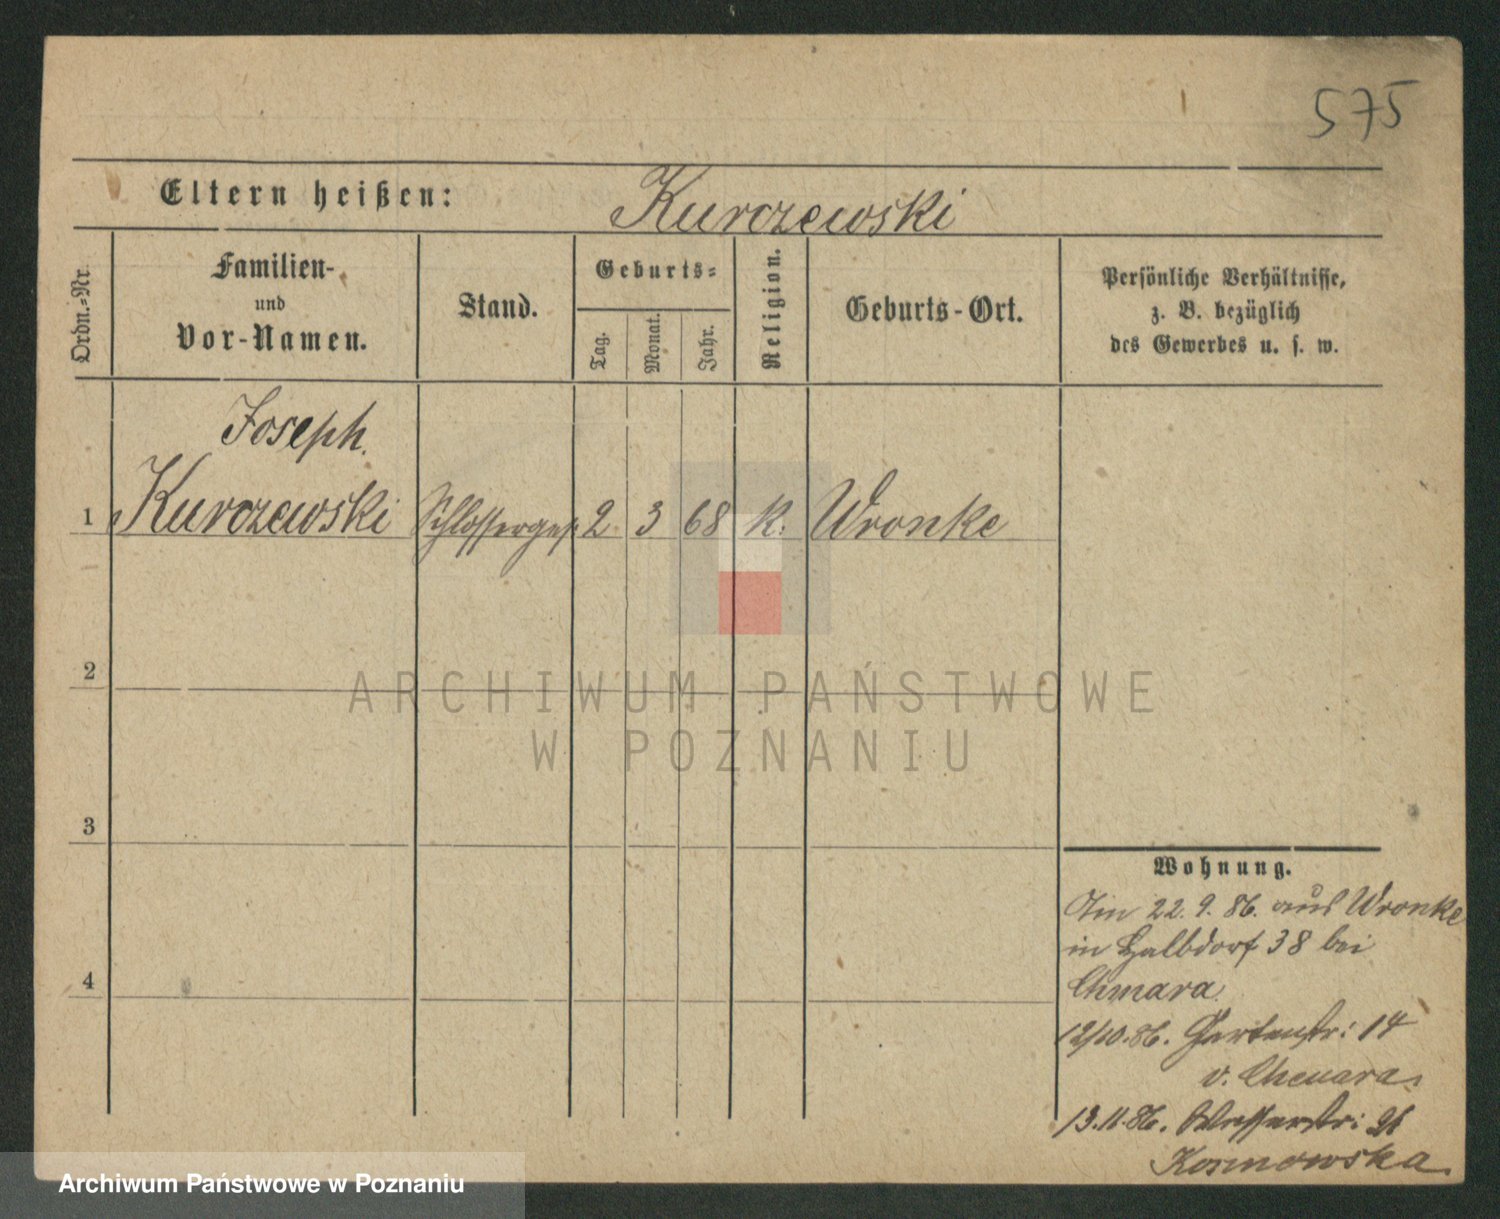 575
Eltern heißen: Kurczewski
Ordn.=Nr.
Familien-
und
Vor-Namen.
Stand.
Geburts=
Tag.
Monat.
Jahr.
Religion.
Geburts-Ort.
Persönliche Verhältnisse,
z. B. bezüglich
des Gewerbes u. s. w.
Joseph
1 Kurczewski Schlosserges. 2 3 68 k. Wronke
2
ARCHIWUM PAŃSTWOWE
W POZNANIU
3
4
Wohnung.
22. 9. 86. aus Wronke
in Halbdorf 38 bei
Chmara
12/10. 86. Gartenstr: 14
v. Chmara
13.11.86. Wasserstr:
Kosmowska
Archiwum Państwowe w Poznaniu